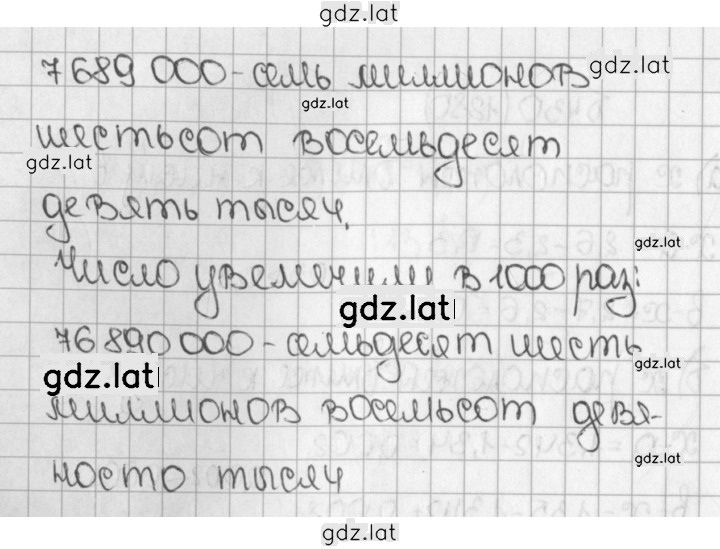 gdz.lat
7 689 000 - семь миллионов gdz.lat
gdz.lat
шестьсот восемьдесят
gdz.lat
девять тысяч.
gdz.lat
Число увеличили в 1000 раз:
gdz.lat
76 890 000 - семьдесят шесть
gdz.lat gdz.lat
миллионов восемьсот девя-
gdz.lat
носто тысяч
gdz.lat